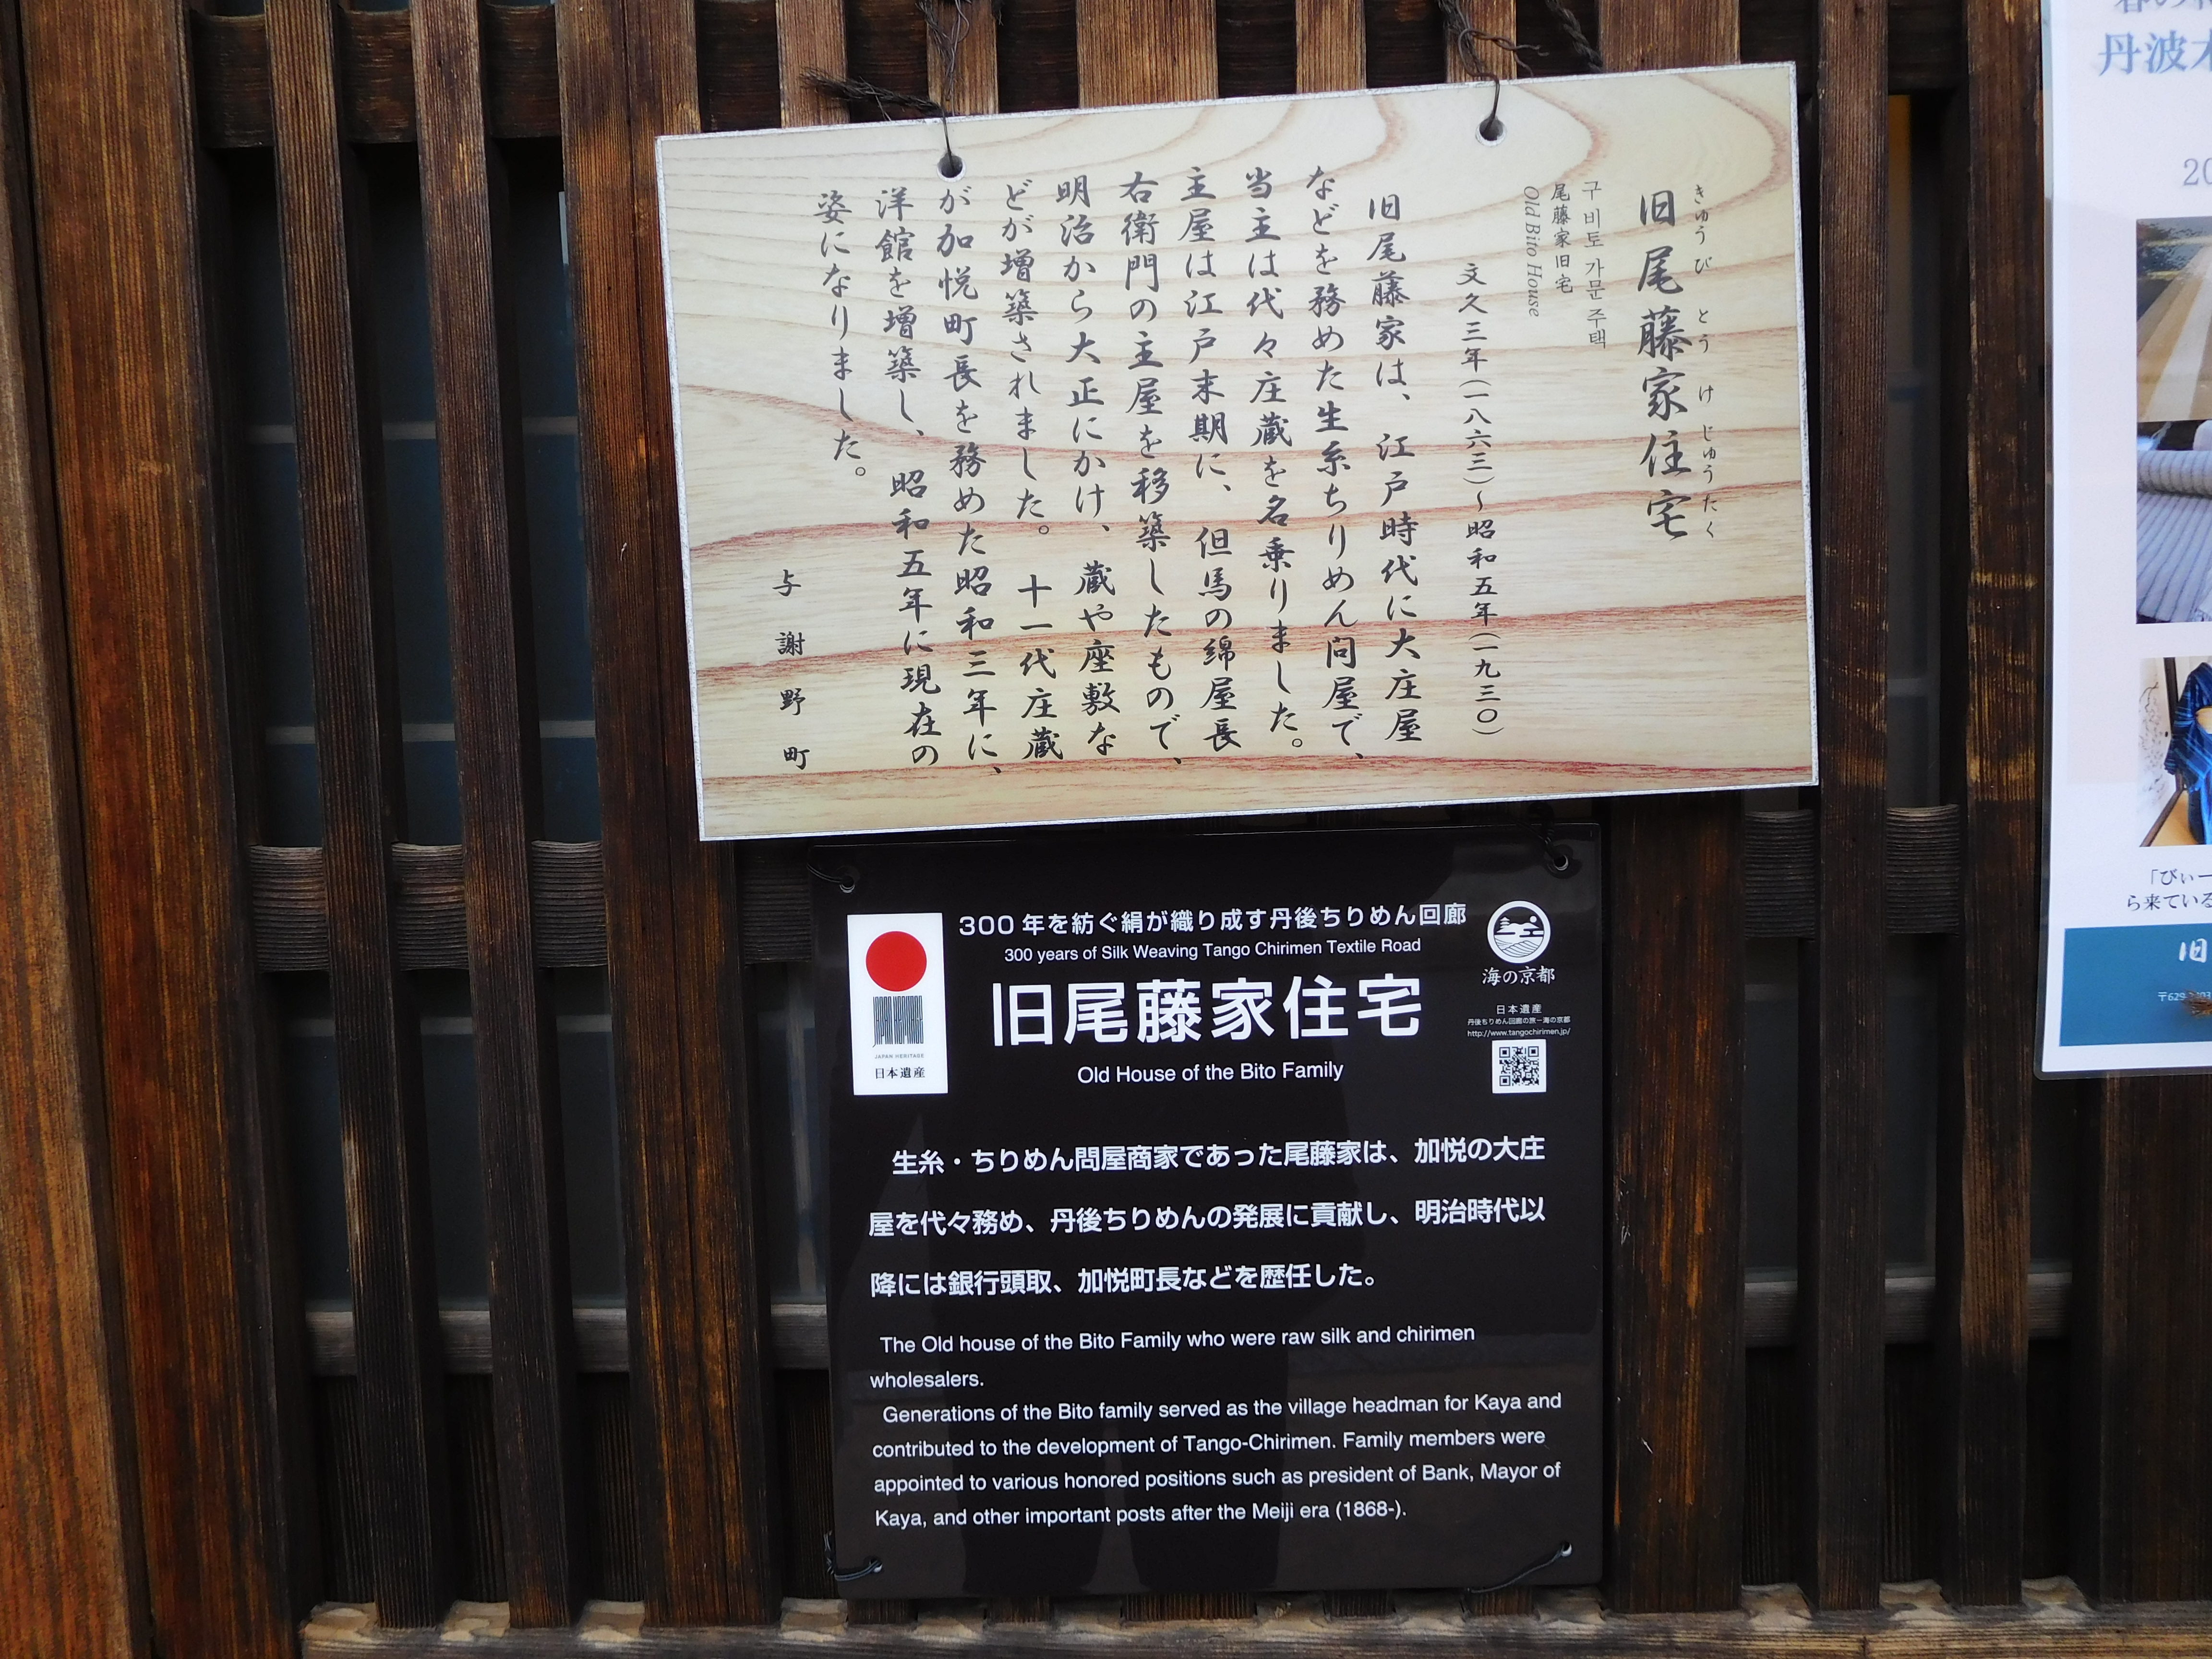 旧尾藤家住宅
きゅうびとうけじゅうたく
구 비토 가문 주택
尾藤家旧宅
Old Bito House
文久三年(一八六三)~昭和五年(一九三〇)
旧尾藤家は、江戸時代に大庄屋
などを務めた生糸ちりめん問屋で、
当主は代々庄蔵を名乗りました。
主屋は江戸末期に、但馬の綿屋長
右衛門の主屋を移築したもので、
明治から大正にかけ、蔵や座敷な
どが増築されました。十一代庄蔵
が加悦町長を務めた昭和三年に、
洋館を増築し、昭和五年に現在の
姿になりました。
与謝野町
300年を紡ぐ絹が織り成す丹後ちりめん回廊
300 years of Silk Weaving Tango Chirimen Textile Road
旧尾藤家住宅
Old House of the Bito Family
JAPAN HERITAGE
JAPAN HERITAGE
日本遺産
海の京都
日本遺産
丹後ちりめん回廊の旅-海の京都
http://www.tangochirimen.jp/
生糸・ちりめん問屋商家であった尾藤家は、加悦の大庄
屋を代々務め、丹後ちりめんの発展に貢献し、明治時代以
降には銀行頭取、加悦町長などを歴任した。
The Old house of the Bito Family who were raw silk and chirimen
wholesalers.
Generations of the Bito family served as the village headman for Kaya and
contributed to the development of Tango-Chirimen. Family members were
appointed to various honored positions such as president of Bank, Mayor of
Kaya, and other important posts after the Meiji era (1868-).
丹波木
20
「びぃー
ら来ている
旧
〒629